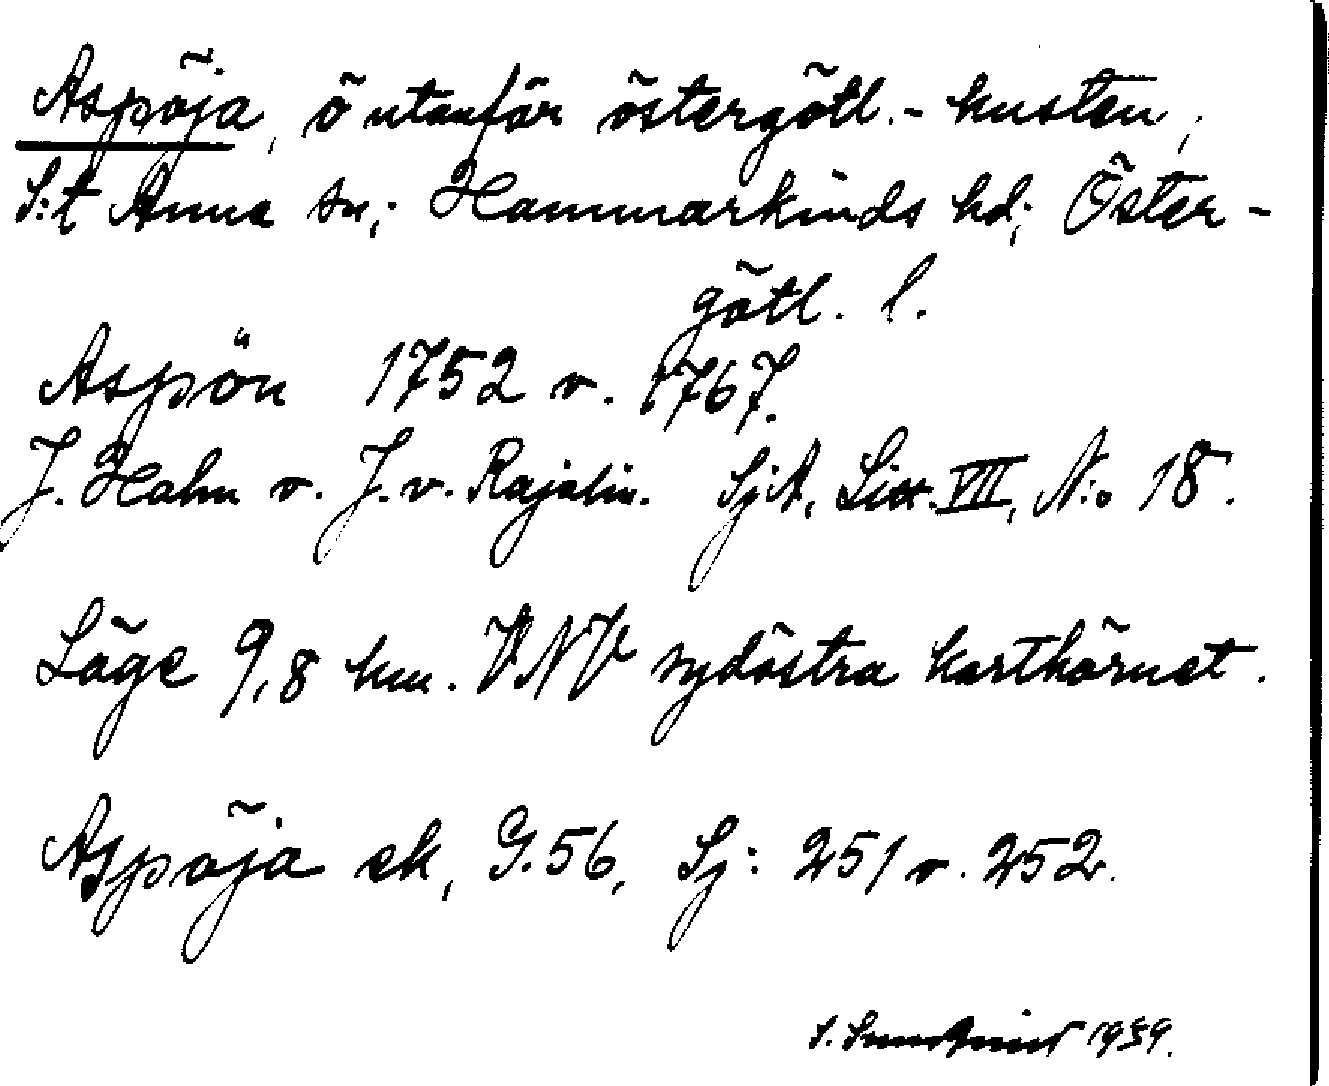 Aspöja, ö utanför östergötl.-kusten,
S:t Anna sn; Hammarkinds hd; Öster-
götl. l.
Aspön 1752 o. 1767.
J. Hahn o. J. v. Rajalin. SjA, Litt. VII, N:o 18.
Läge 9,8 km. VNV sydöstra karthörnet.
Aspöja ek, G. 56, Sj: 251 o. 252.
S. 1959.